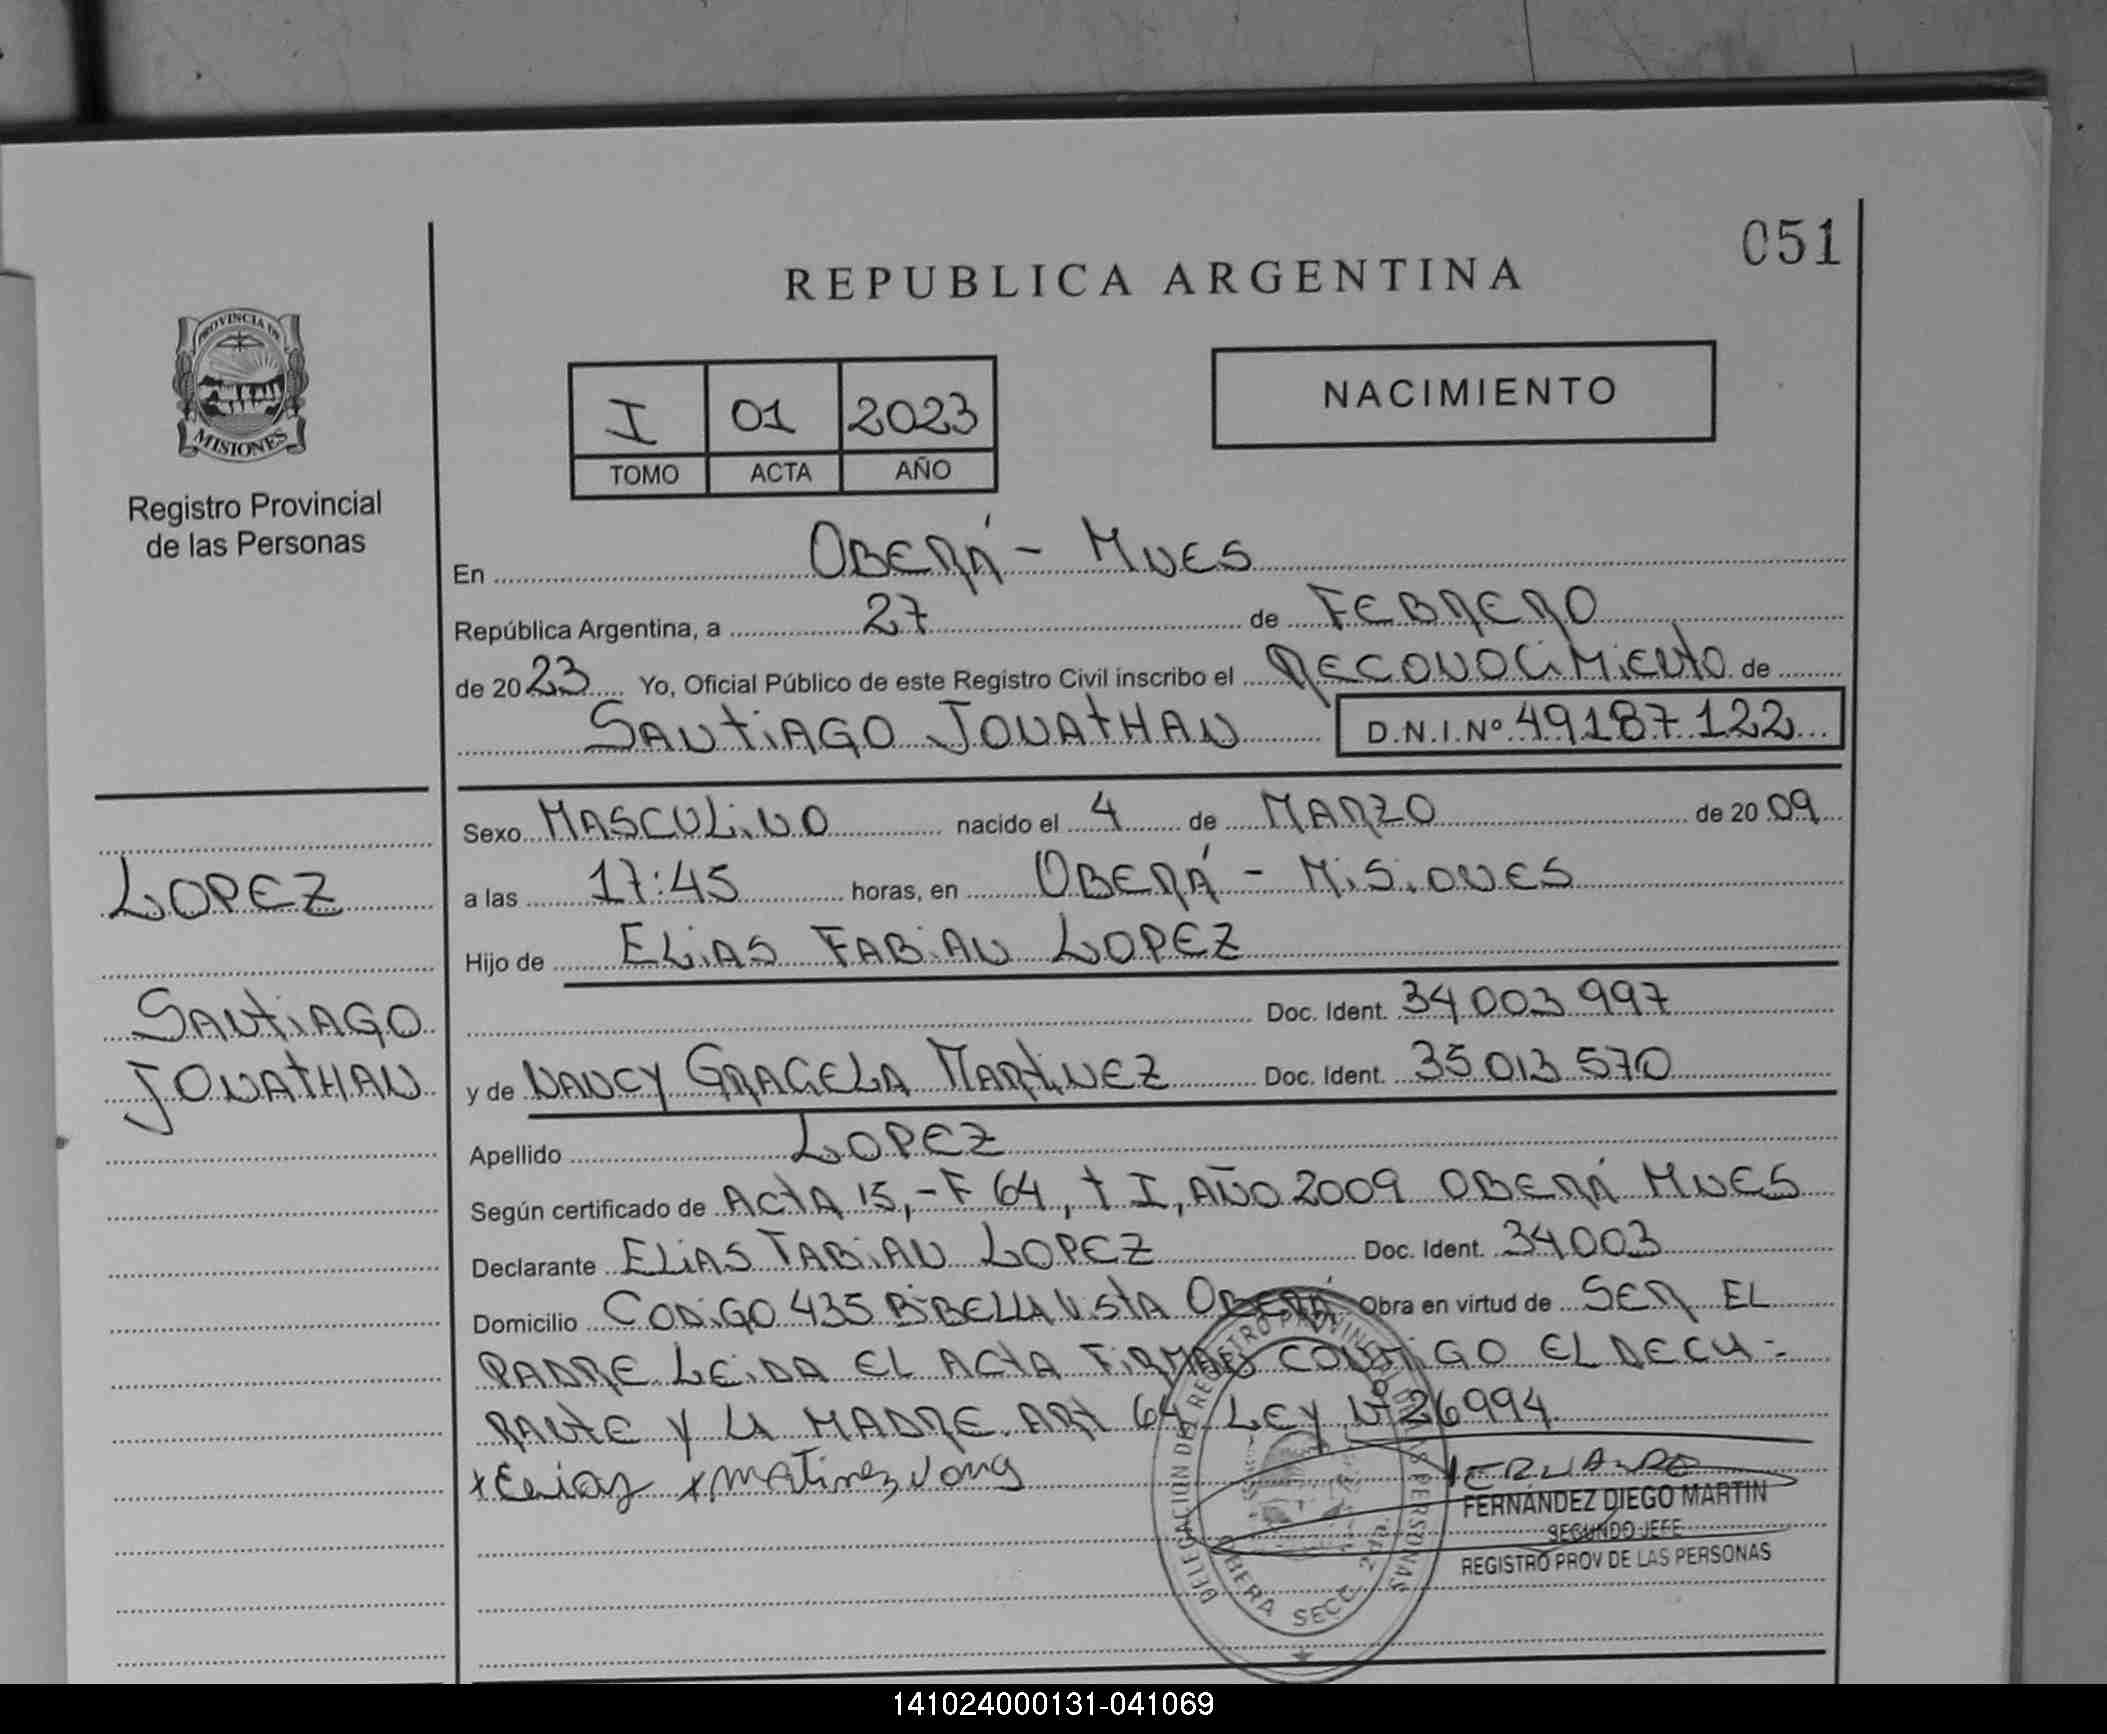 051
REPUBLICA ARGENTINA
PROVINCIA DE
MISIONES
Registro Provincial
de las Personas
I 01 2023
TOMO ACTA AÑO
NACIMIENTO
En OBERÁ - MNES
República Argentina, a 27 de FEBRERO
de 2023 Yo, Oficial Público de este Registro Civil inscribo el RECONOCIMIENTO de
SANTIAGO JONATHAN D.N.I.Nº 49187122
Sexo MASCULINO nacido el 4 de MARZO de 2009
a las 17:45 horas, en OBERÁ - MISIONES
Hijo de ELIAS FABIAN LOPEZ
Doc. Ident. 34003997
y de NANCY GRACIELA MARTINEZ Doc. Ident. 35013570
Apellido LOPEZ
Según certificado de ACTA 15,- F 64, T I, AÑO 2009 OBERÁ MNES
Declarante ELIAS FABIAN LOPEZ Doc. Ident. 34003
Domicilio CODIGO 435 Bº BELLA VISTA OBERÁ Obra en virtud de SER EL
PADRE LEIDA EL ACTA FIRMAN CONMIGO EL DECLA-
RANTE Y LA MADRE. ART 64 LEY Nº 26994
LOPEZ
SANTIAGO
JONATHAN
FERNANDEZ DIEGO MARTIN
SEGUNDO JEFE
REGISTRO PROV DE LAS PERSONAS
DELEGACION DEL REGISTRO PROVINCIAL DE LAS PERSONAS
OBERA SECC. 2da.
141024000131-041069